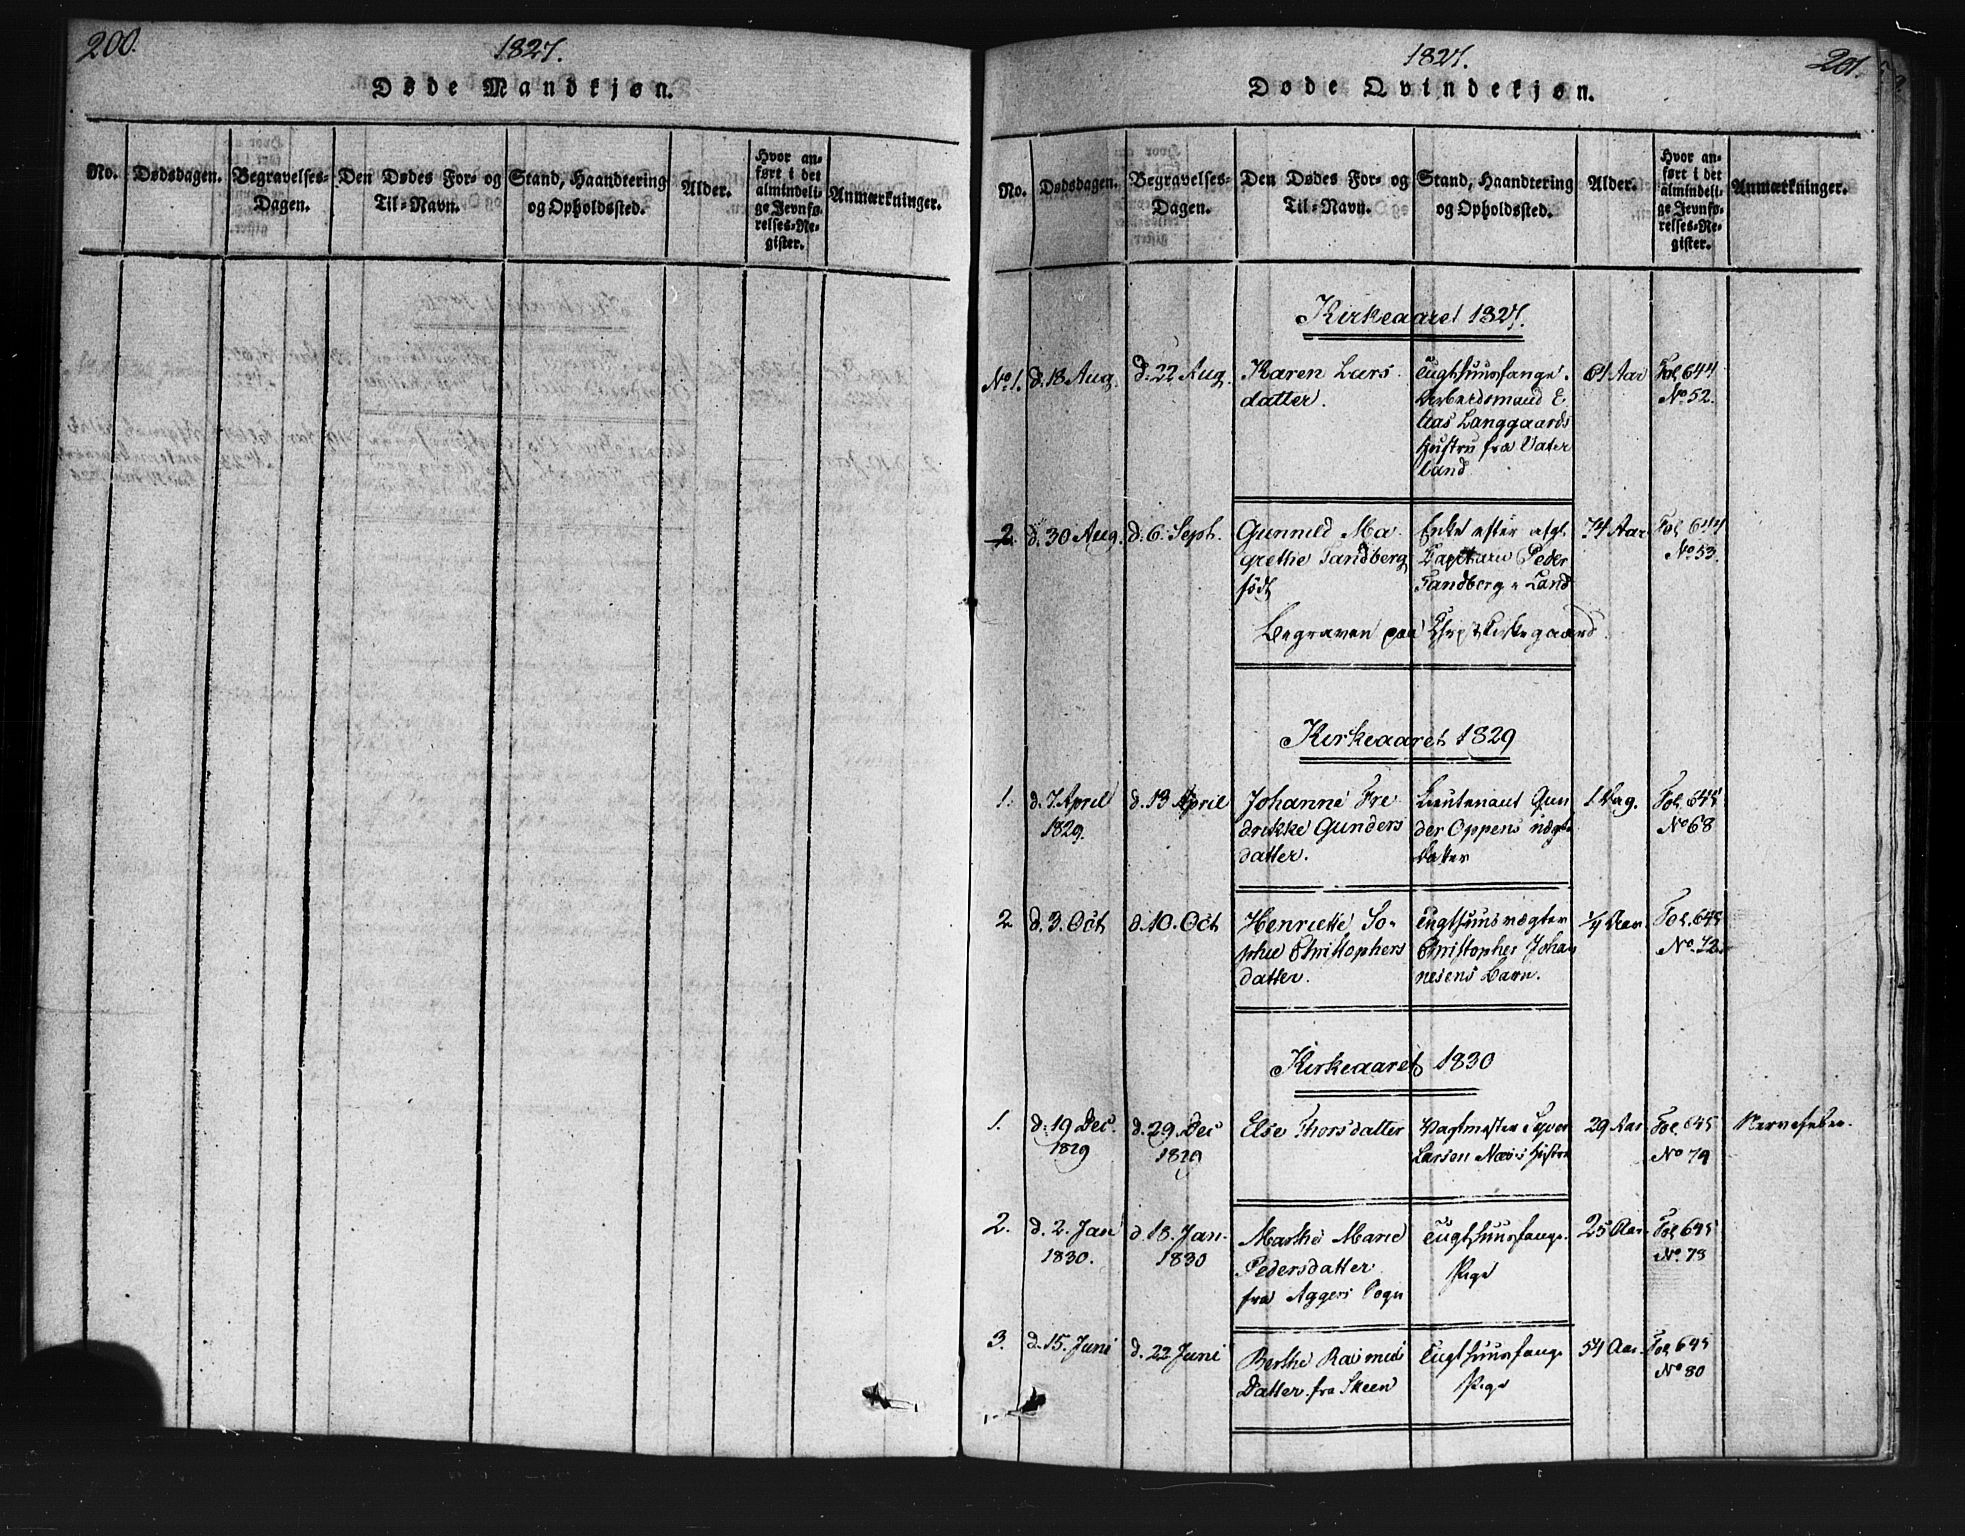 200.
1827.
Døde Mandkjøn.
No.
Dødsdagen.
Begravelses-
Dagen.
Den Dødes For- og
Til-Navn.
Stand, Haandtering
og Opholdssted.
Alder.
Hvor an-
ført i det
almindeli-
ge Jevnfø-
relses-Re-
gister.
Anmærkninger.
1827.
201.
Døde Qvindekjøn.
No.
Dødsdagen.
Begravelses-
Dagen.
Den Dødes For- og
Til-Navn.
Stand, Haandtering
og Opholdssted.
Alder.
Hvor an-
ført i det
almindeli-
ge Jevnfø-
relses-Re-
gister.
Anmærkninger.
Kirkeaaret 1827.
No 1.
d. 18 Aug.
d. 22 Aug.
Karen Lars
datter.
Tugthuusfange.
Arbeidsmand E
lias Langgaards
Hustru fra Vater
land
61 Aar
Fol 644
No 52.
2
d. 30 Aug.
d. 6. Seph.
Gunnild Ma
grethe Sandberg
født
Enke efter afgl.
Capitain Peder
Sandberg
Begraven paa Kirkegaard
74 Aar
Fol 644
No 53.
Kirkeaaret 1829
1.
d. 7 April
1829.
d. 13 April
Johanne Fre
drikke Gunders
datter.
Lieutenant Gun
der Oppens uægte
Datter
1 Dag.
Fol. 645
No 68
2
d. 3. Oct
d. 10. Oct
Henriette So-
phie Christophers
datter.
Tugthuusvægter
Christopher Johan
nesens Barn.
1/4 Aar.
Fol. 645
No. 72.
Kirkeaaret 1830
1.
d. 19 Dec.
1829
d. 29 Dec
1829
Else Thorsdatter
Vagtmester Syver
Larsen Næss Hustru
29 Aar
Fol. 645
No 79
Nervefeber.
2.
d. 2. Jan
1830.
d. 18. Jan.
1830
Marthe Marie
Pedersdatter
fra Aggers Sogn
Tugthuusfange.
Pige
25 Aar
Fol 645
No. 78
3.
d. 15. Juni
d. 22 Juni
Berthe Rasmus
Datter fra Skeen
Tugthuusfange
Pige
54 Aar.
Fol 645
No 80